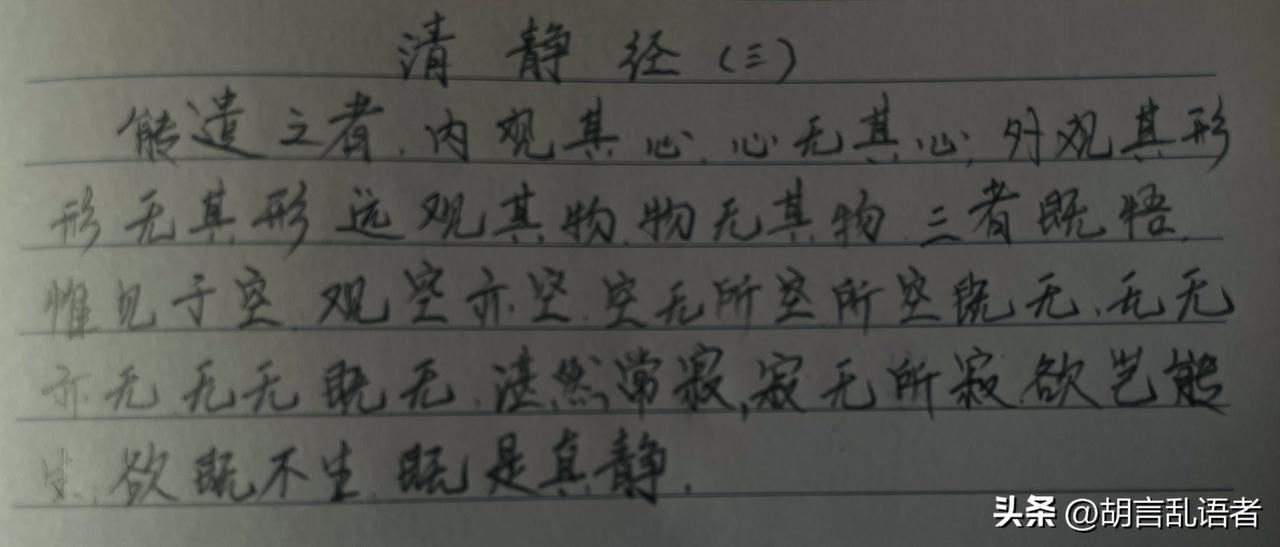 清静经（三）
能遣之者.内观其心.心无其心,外观其形
形无其形.远观其物.物无其物.三者既悟.
惟见于空.观空亦空.空无所空.所空既无、无无
亦无.无无既无.湛然常寂,寂无所寂.欲岂能
生.欲既不生.既是真静.
头条 @胡言乱语者